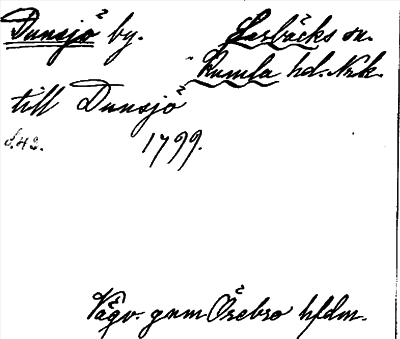 Dunsjö by. Lerbäcks sn.
Kumla hd. Nrk.
till Dunsjö
1799.
Vägv. gnm Örebro hfdm.